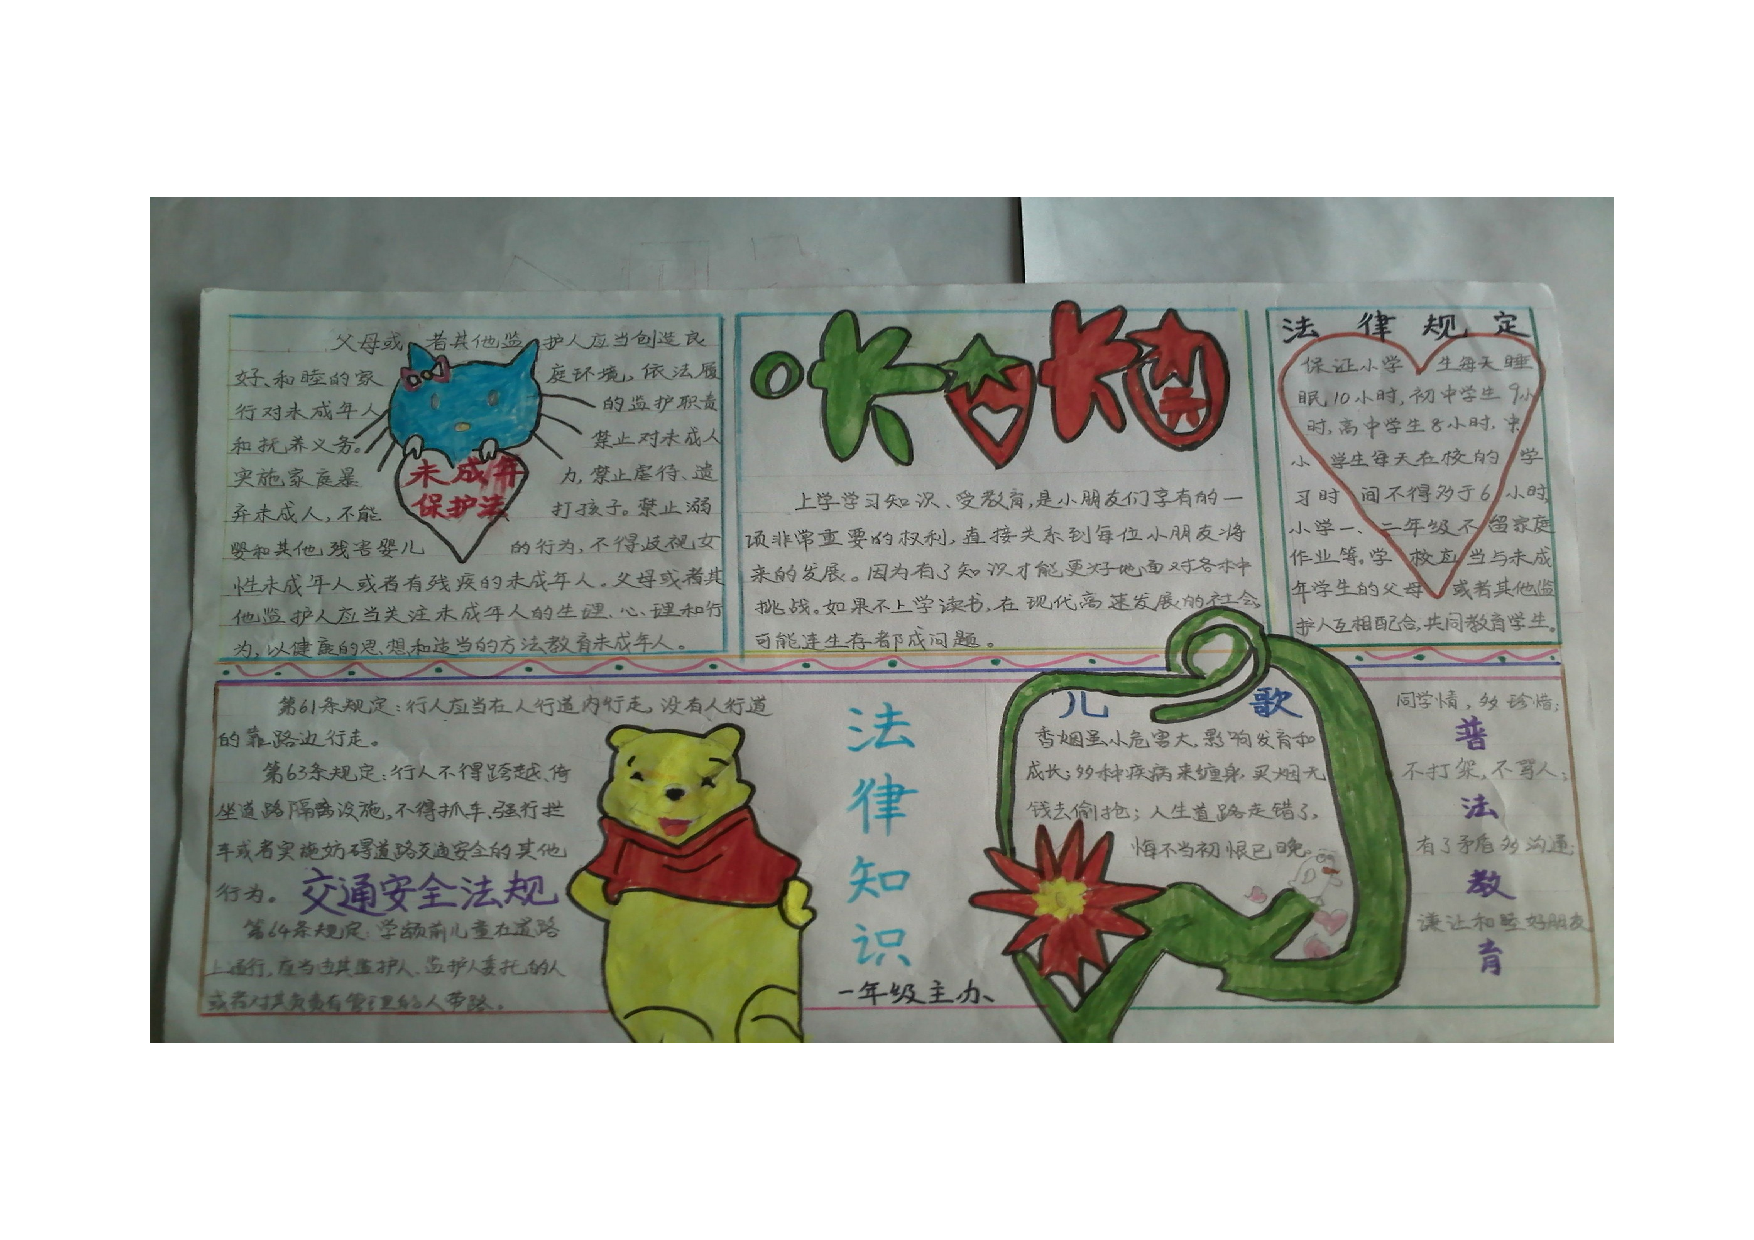 父母或者其他监护人应当创造良
好、和睦的家庭环境，依法履
行对未成年人的监护职责
和抚养义务。禁止对未成年人
实施家庭暴力，禁止虐待、遗
弃未成年人，不能打孩子。禁止溺
婴和其他残害婴儿的行为，不得歧视女
性未成年人或者有残疾的未成年人。父母或者其
他监护人应当关注未成年人的生理、心理和行
为，以健康的思想和适当的方法教育未成年人。
未成年
保护法
上学学习知识、受教育，是小朋友们享有的一
项非常重要的权利，直接关系到每位小朋友将
来的发展。因为有了知识才能更好地面对各种
挑战。如果不上学读书，在现代高速发展的社会
可能连生存都成问题。
法律规定
保证小学生每天睡
眠10小时，初中学生9小
时，高中学生8小时，
小学生每天在校的学
习时间不得多于6小时，
小学一、二年级不留家庭
作业等。学校应当与未成
年学生的父母或者其他监
护人互相配合，共同教育学生。
第61条规定：行人应当在人行道内行走，没有人行道
的靠路边行走。
第63条规定：行人不得跨越、倚
坐道路隔离设施，不得扒车、强行拦
车或者实施妨碍道路交通安全的其他
行为。
交通安全法规
第64条规定：学龄前儿童在道路
上通行，应当由其监护人、监护人委托的人
或者对其负责有管理的人带路。
法律知识
一年级主办
儿歌
香烟虽小危害大，影响发育和
成长；多种疾病来缠身，买烟无
钱去偷抢；人生道路走错了，
悔不当初恨已晚。
同学情，多珍惜；
不打架，不骂人；
有了矛盾多沟通；
谦让和睦好朋友
普法教育